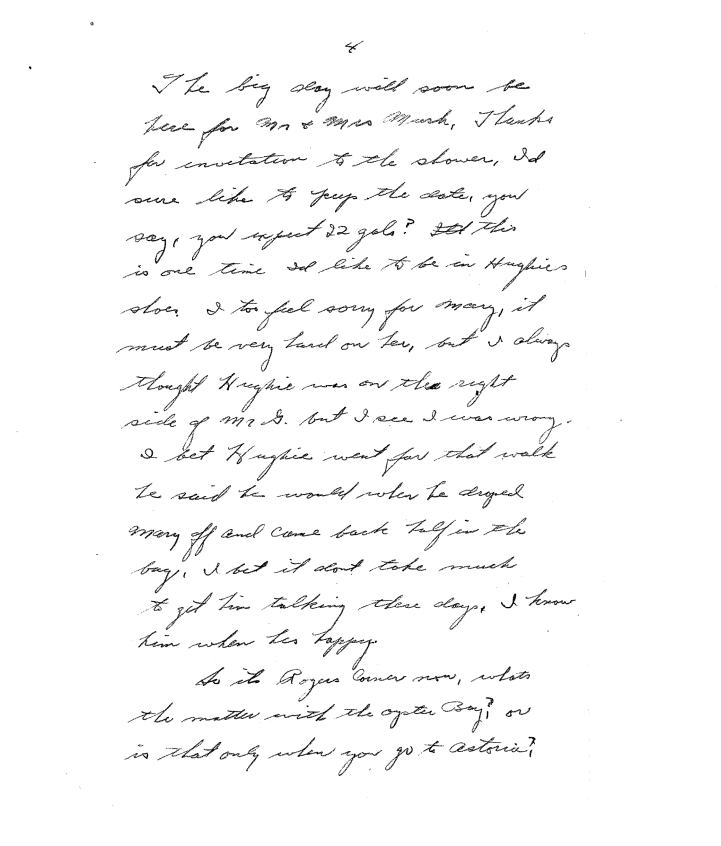 4
The big day will soon be
here for Mr & Mrs Mush, Thanks
for invitation to the shower, Id
sure like to peep the date, you
say, you expect 22 gals? this
is one time Id like to be in Hughies
shoes I too feel sorry for Mary, it
must be very hard on her, but I always
thought Hughie was on the right
side of Mr G. but I see I was wrong.
I bet Hughie went for that walk
he said he would when he droped
Mary off and came back half in the
bag, I bet it dont take much
to get him talking these days, I know
him when hes happy.
So its Rogers Corner now, whats
the matter with the oyster Bay? or
is that only when you go to Astoria?